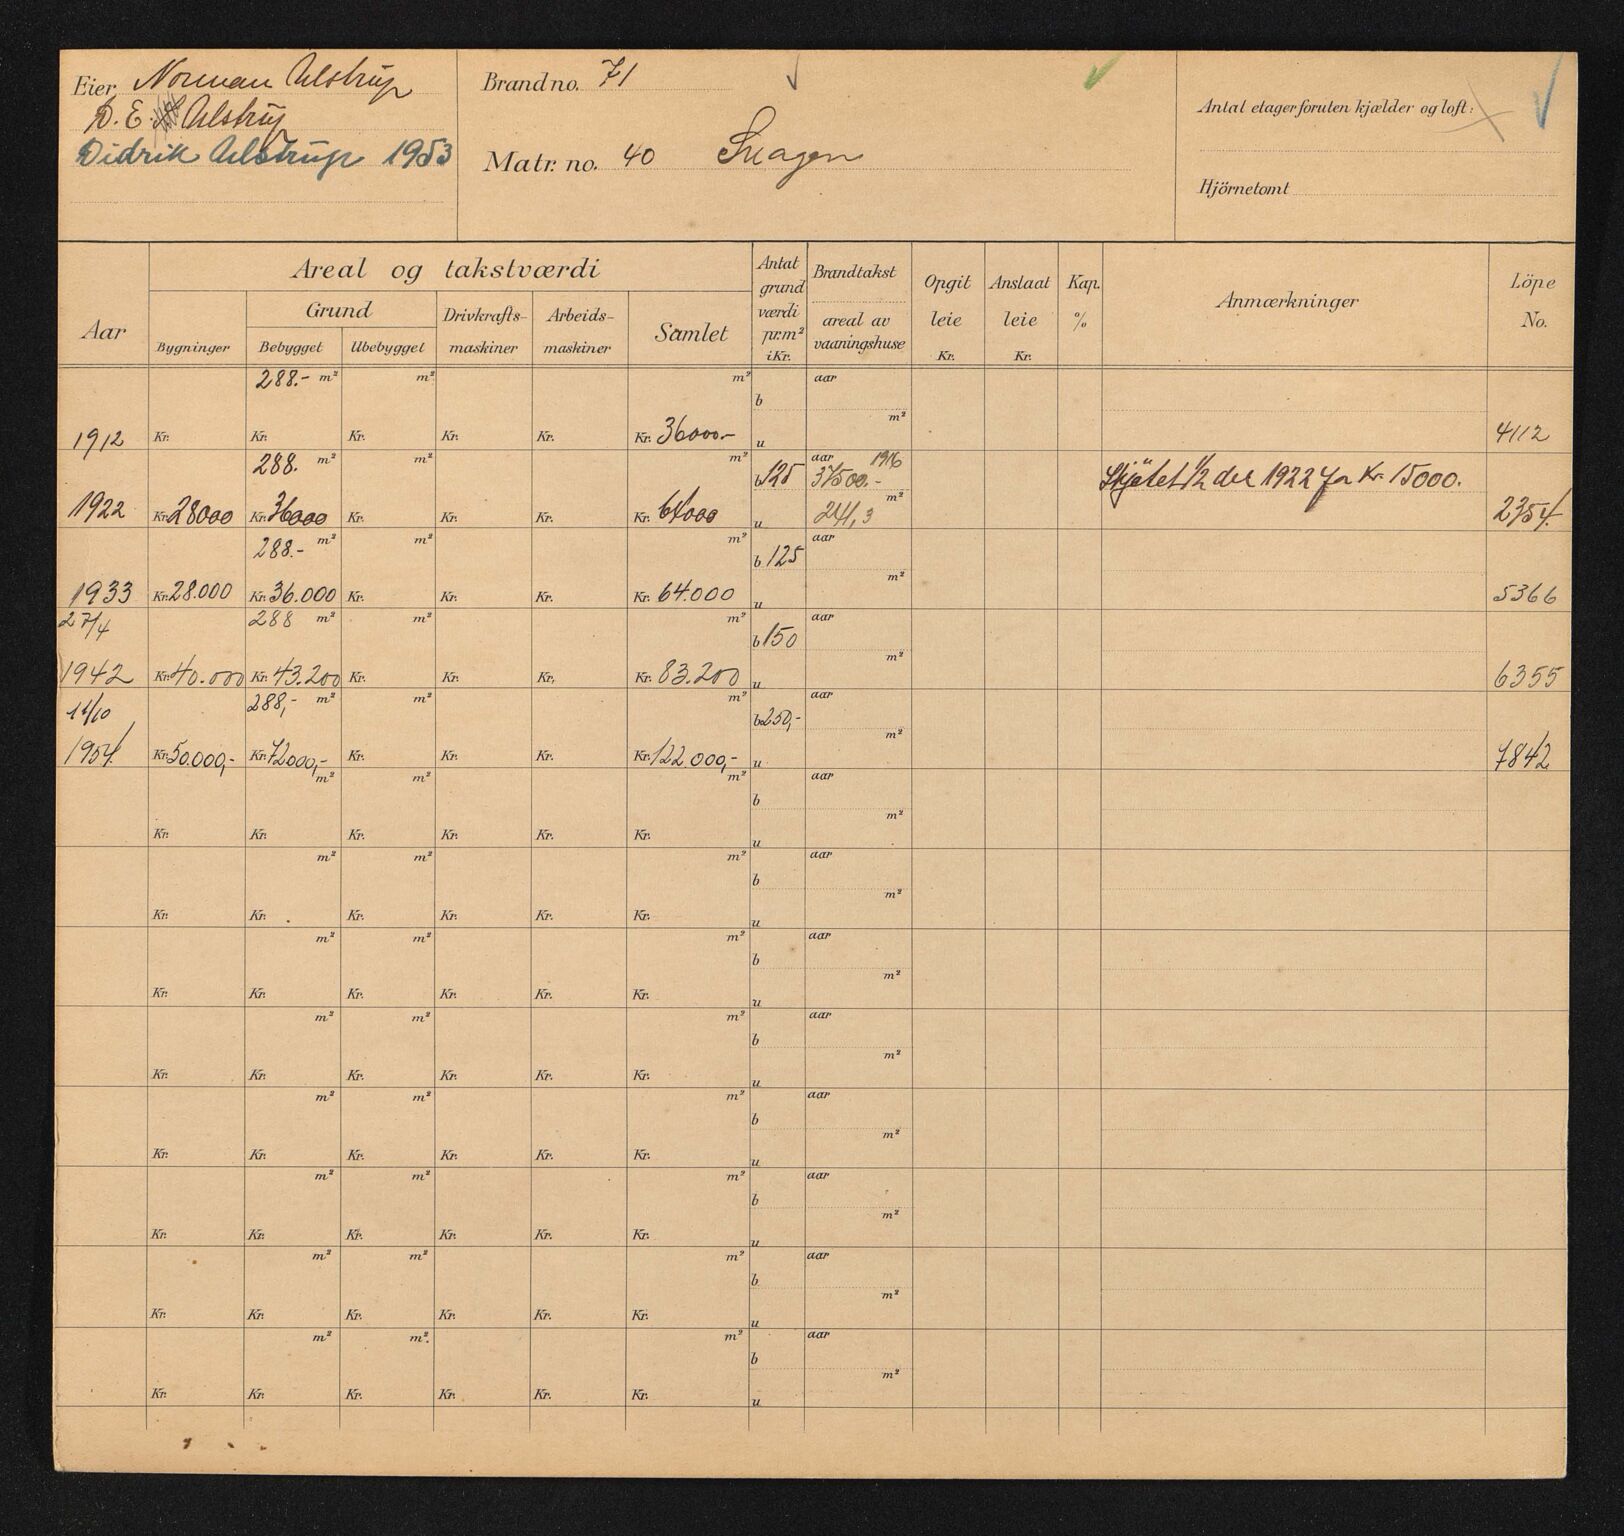 Eier Norman Ulstrup
D. E. Ulstrup
Didrik Ulstrup 1953
Brand no. 71
Matr. no. 40 Smagen
Antal etager foruten kjælder og loft:
Hjörnetomt
Aar
Areal og takstværdi
Bygninger
Grund
Bebygget
Ubebygget
Drivkrafts-
maskiner
Arbeids-
maskiner
Samlet
Antat
grund
værdi
pr. m²
i Kr.
Brandtakst
areal av
vaaningshuse
Opgit
leie
Kr.
Anslaat
leie
Kr.
Kap.
%
Anmærkninger
Löpe
No.
288.- m² m² m² aar
b
m²
1912 Kr. Kr. Kr. Kr. Kr. Kr. 36000.- u 4112
288. m² m² m² b 125 aar 1916
37500.- Skjøtet 1/2 del 1922 for Kr. 15000.
m²
1922 Kr. 28000 Kr. 36000 Kr. Kr. Kr. Kr. 64000 u 241,3 2754.
288.- m² m² m² b 125 aar
m²
1933 Kr. 28.000 Kr. 36.000 Kr. Kr. Kr. Kr. 64.000 u 5366
27/4 288 m² m² m² b 150 aar
m²
1942 Kr. 40.000 Kr. 43.200 Kr. Kr. Kr. Kr. 83.200 u 6355
14/10 288,- m² m² m² b 250,- aar
m²
1954. Kr. 50.000,- Kr. 72000,- Kr. Kr. Kr. Kr. 122.000,- u 7842
m² m² m² aar
b
m²
Kr. Kr. Kr. Kr. Kr. Kr. u
m² m² m² aar
b
m²
Kr. Kr. Kr. Kr. Kr. Kr. u
m² m² m² aar
b
m²
Kr. Kr. Kr. Kr. Kr. Kr. u
m² m² m² aar
b
m²
Kr. Kr. Kr. Kr. Kr. Kr. u
m² m² m² aar
b
m²
Kr. Kr. Kr. Kr. Kr. Kr. u
m² m² m² aar
b
m²
Kr. Kr. Kr. Kr. Kr. Kr. u
m² m² m² aar
b
m²
Kr. Kr. Kr. Kr. Kr. Kr. u
m² m² m² aar
b
m²
Kr. Kr. Kr. Kr. Kr. Kr. u